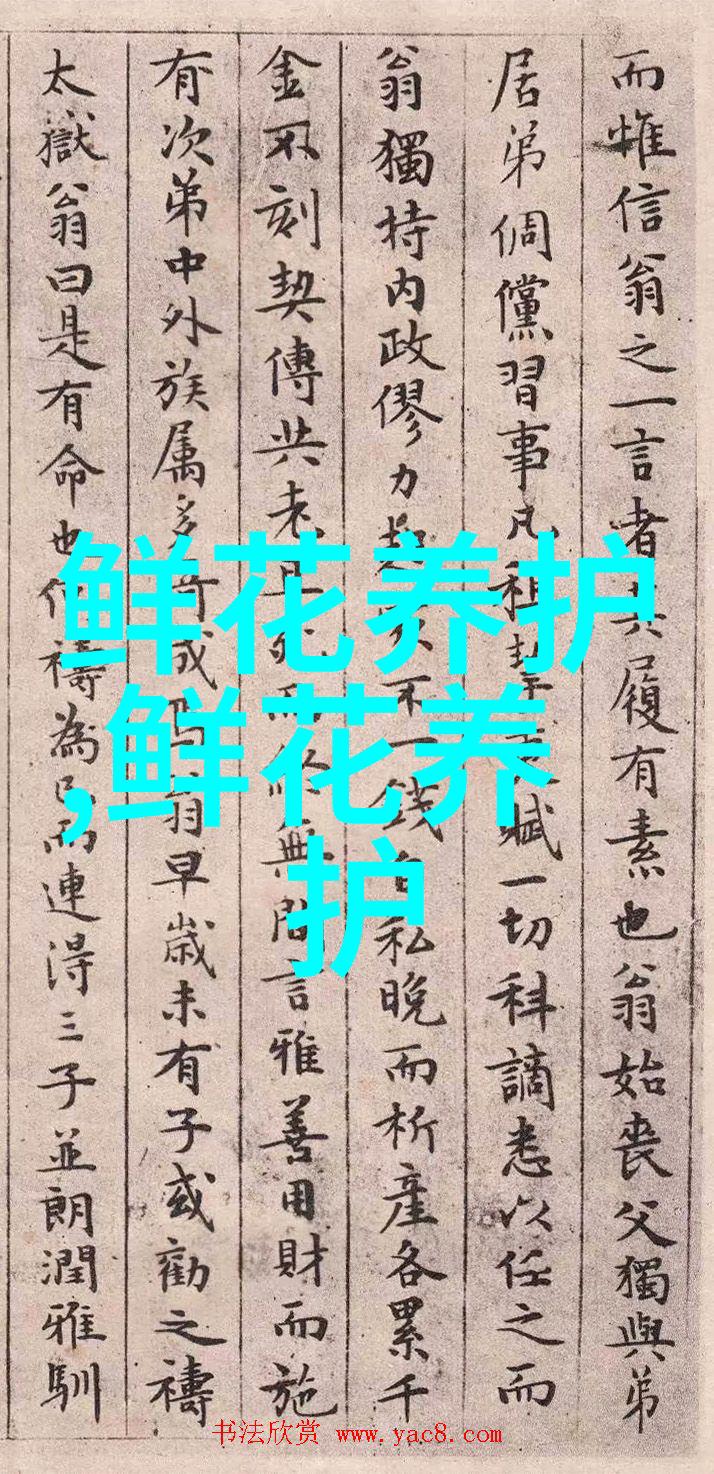 而惟信翁之一言者其履有素也翁始喪父獨與弟
居弟倜儻習事凡租賦一切科謫悉以任之而
翁獨持内政僇力起不一錢自私晚而析產各累千
金不刻契傳其無間言雅善用財而施
有次第中外族属多早歲未有子或勸之禱
太嶽翁曰是有命也何禱為已而連得三子並朗潤雅馴
鲜花养护
,鲜花养
护
书法欣赏 www.yac8.com